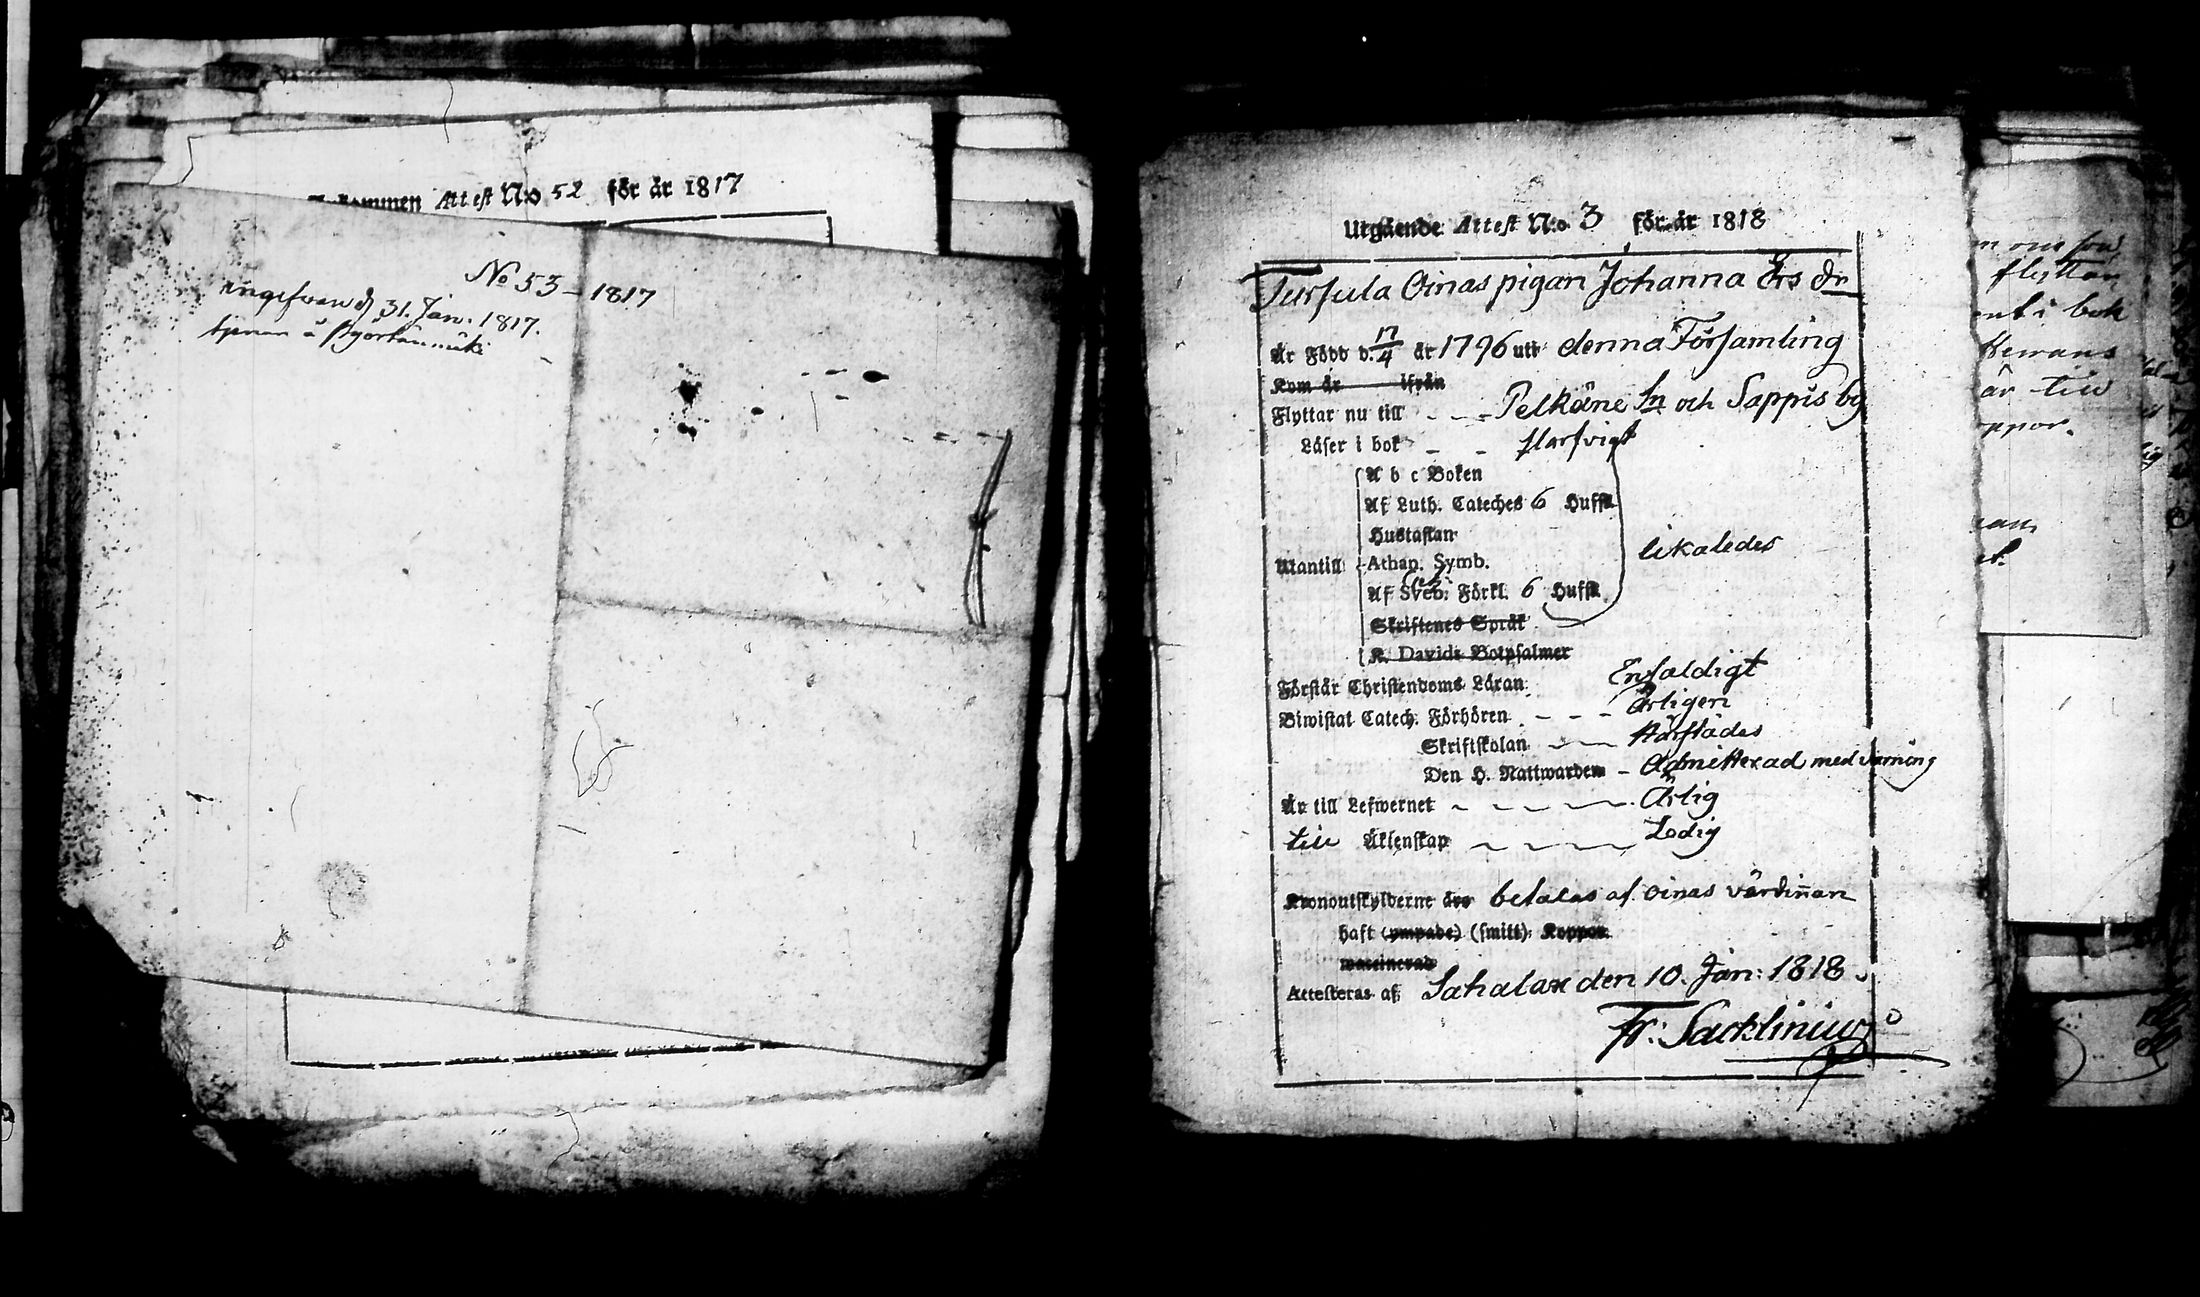 kommen Attest No 52 för år 1817
No 53 - 1817
den 31. Jan. 1817.
tjenar å
Utgående Attest N:o 3 för år 1818
Tursula Oinas pigan Johanna Ers dr
Är Född d. 17/4 år 1796 uti denna Församling
Kom år ifrån
Flyttar nu till - - Pelkäne Sn och Sappis by
Läser i bok - -
A b c Boken
Af Luth. Cateches 6 Hufst.
Hustaflan
Utantill Athan. Symb.
likaledes
Af Sveb. Förkl. 6 Hufst.
Skriftenes Språk
K. Davids Botpsalmer
Förstår Christendoms Läran Enfaldigt
Biwistat Catech. Förhören - - - Årligen
Skriftskolan - - Härstädes
Den H. Nattwarden - Admitterad med varning
Är till Lefwernet - - - - Ärlig
till Äktenskap - - - - Ledig
Kronoutskylderne äro betalas af Oinas värdinnan
haft (ympade) (smitt) Koppor
waccinerad
Attesteras af, Sahalax den 10. Jan: 1818.
Fr: Sacklinius
flyttar
i bok
år till